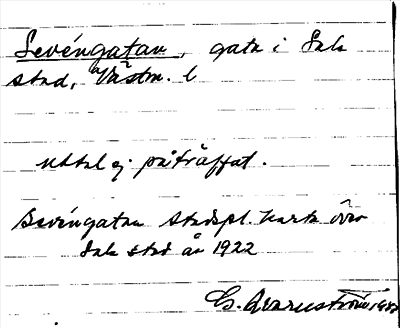 Sevéngatan, gata i Sala
stad, Västm. l
uttal ej påträffat.
Sevéngatan Stadspl. karta över
Sala stad år 1922
G. Qvarnström